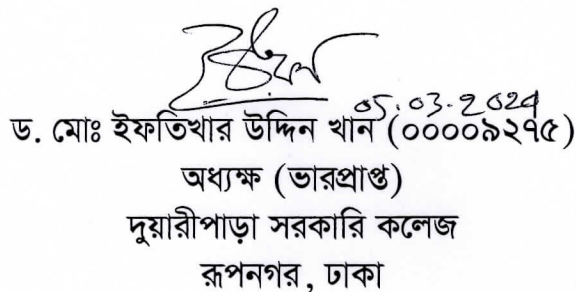 05.03.2024
ড. মোঃ ইফতিখার উদ্দিন খান (০০০০৯২৭৫)
অধ্যক্ষ (ভারপ্রাপ্ত)
দুয়ারীপাড়া সরকারি কলেজ
রূপনগর, ঢাকা